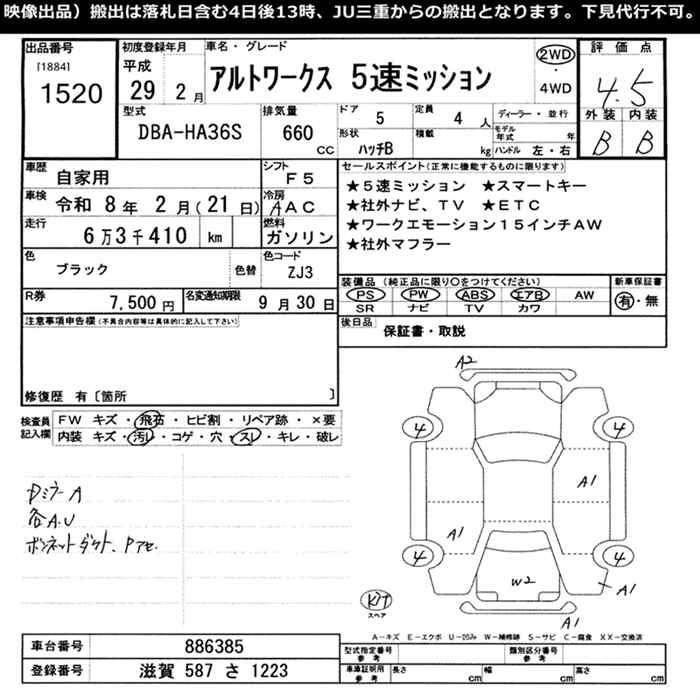 映像出品）搬出は落札日含む4日後13時、JU三重からの搬出となります。下見代行不可。
出品番号
[1884]
1520
初度登録年月
平成
29 2 月
車名・グレード
アルトワークス 5速ミッション
2WD
・
4WD
評価点
4.5
外装 内装
B B
型式
DBA-HA36S
排気量
660
CC
ドア
5
定員
4 人
形状
ハッチB
積載
kg
ディーラー・並行
モデル年式
年
ハンドル 左・右
車歴
自家用
シフト
F5
車検
令和 8年 2月(21日)
冷房
AAC
走行
6万3千410 km
燃料
ガソリン
色
ブラック
色替
色コード
ZJ3
R券
7,500円
名変通知期限
9月30日
セールスポイント(正常に機能するものに限ります)
★5速ミッション ★スマートキー
★社外ナビ、TV ★ETC
★ワークエモーション15インチAW
★社外マフラー
装備品(純正品に限り○をつけてください)
PS PW ABS エアB AW
SR ナビ TV カワ
新車保証書
有・無
後日品
保証書・取説
注意事項申告欄(不具合内容等は具体的に記入して下さい)
修復歴 有〔箇所 〕
検査員
記入欄
FW キズ・飛石・ヒビ割・リペア跡・×要
内装 キズ・汚レ・コゲ・穴・スレ・キレ・破レ
Dミラー A
各A.U
ボンネットダクト、Pアセ.
A2
4 4
A1
A1
4 4
W2
A1
A1
KIT
スペア
A－キズ E－エクボ U－凹み W－補修跡 S－サビ C－腐食 XX－交換済
車台番号
886385
登録番号
滋賀 587 さ 1223
型式指定番号
参考
類別区分番号
参考
車庫証明用
参考
長さ
cm
幅
cm
高さ
cm